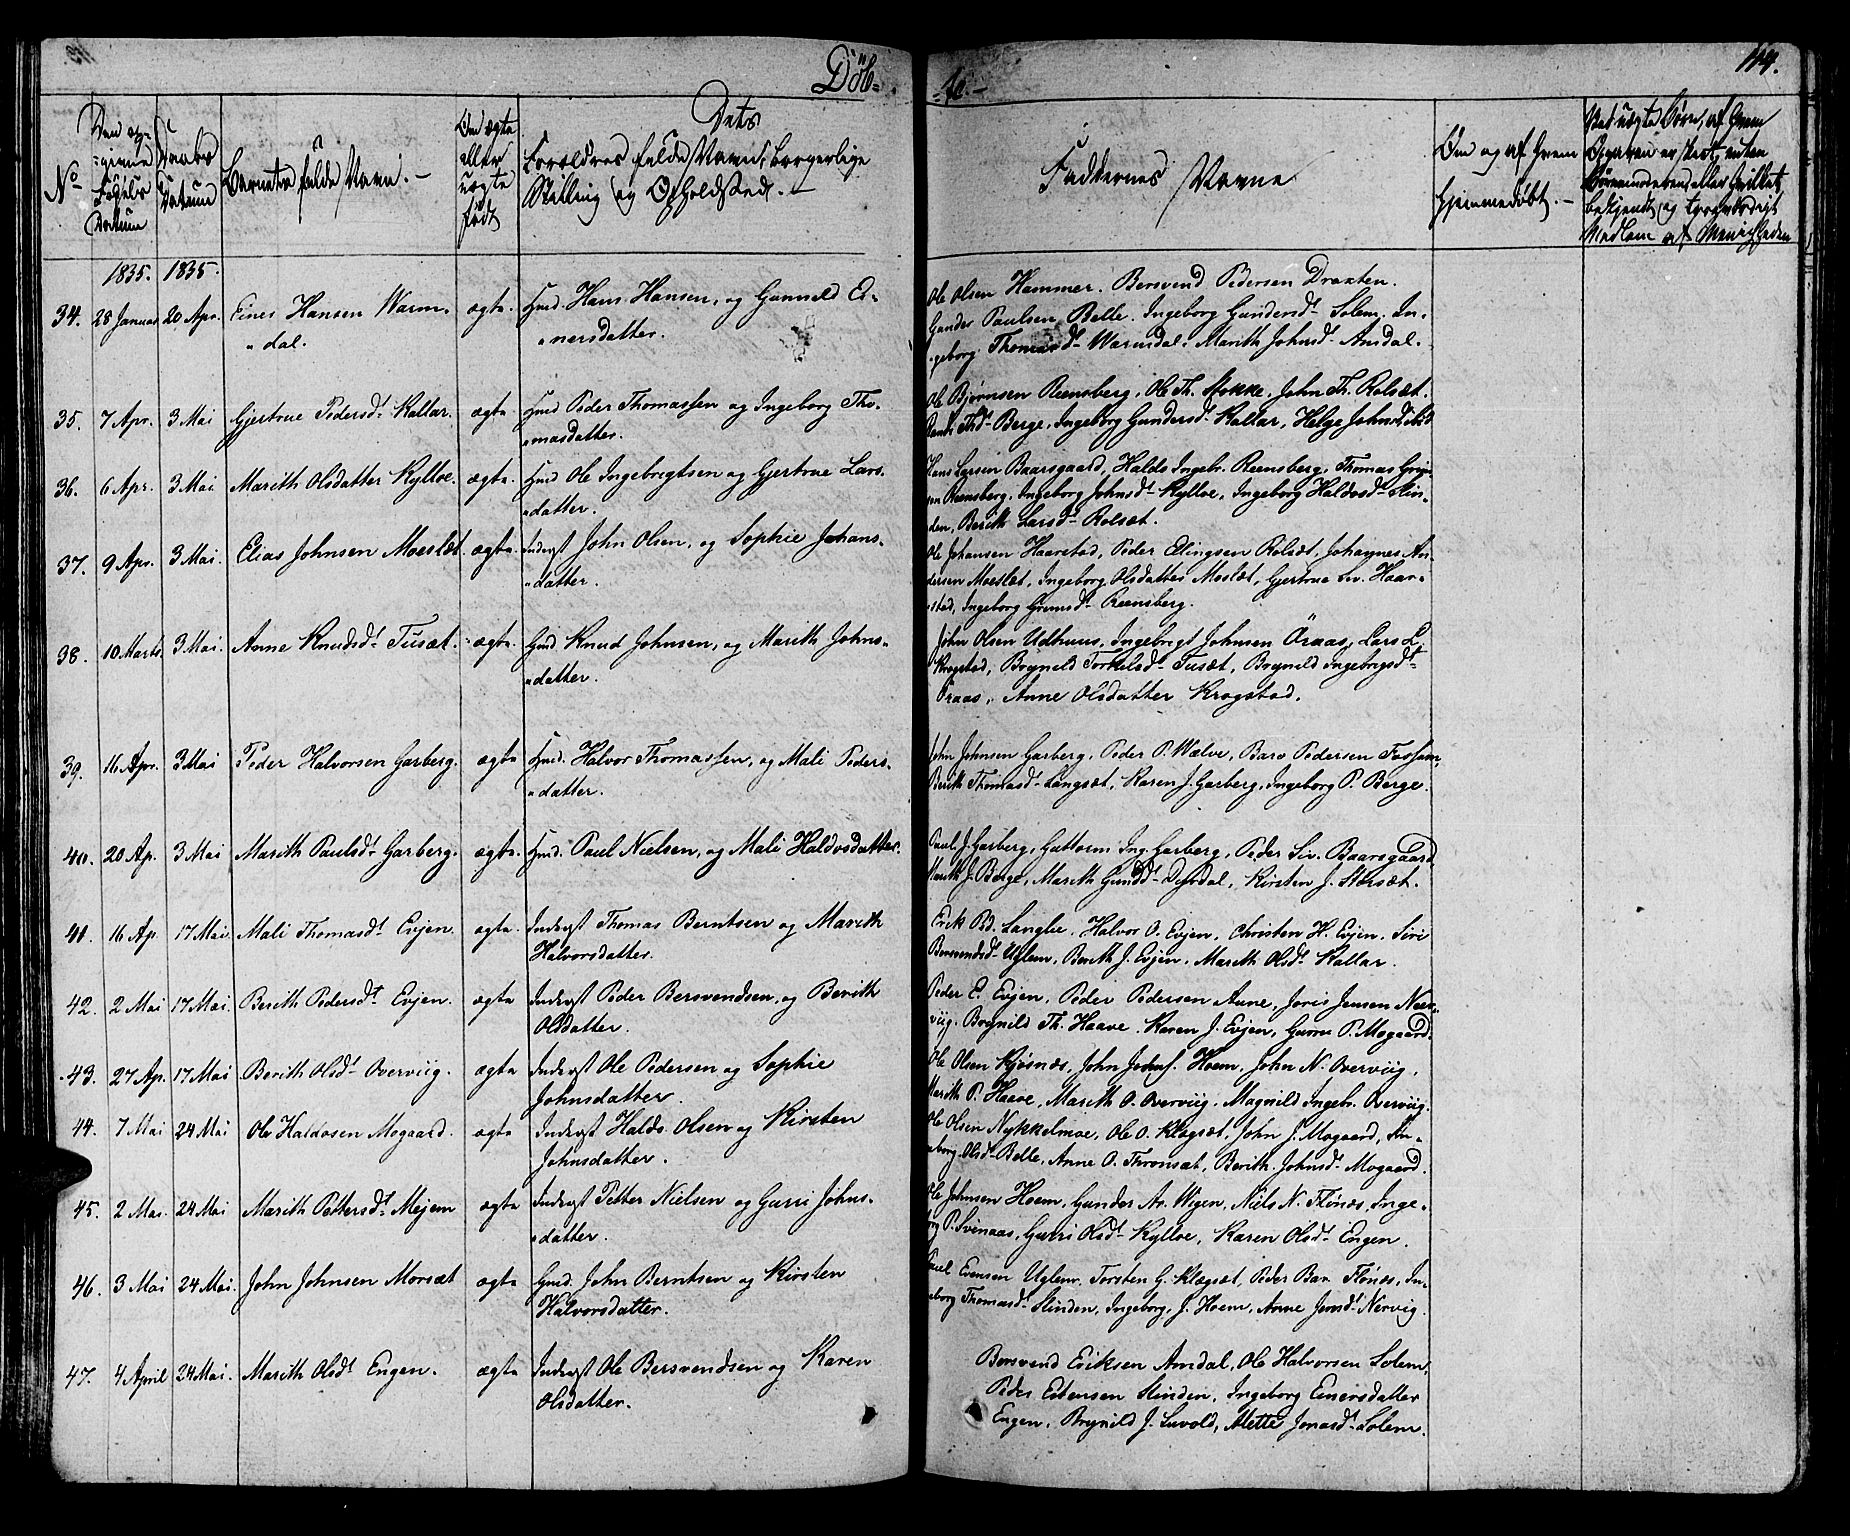 Døb-
te.-
114.
No
Den op=
=givne
Fødsels
Datum
Daabs
Datum
Barnets fulde Navn.-
Om ægte
eller
uægte
født
Dets
Forældres fulde Navn, borgerlige
Stilling og Opholdssted.-
Faddernes Navne
Om og af hvem
hjemmedøbt.-
1835. 1835.
34. 28 Januar 20 Apr. Einer Hansen Warm- ægte. Gmd. Hans Hansen, og Gunnild Ei-
"dal. "nersdatter.
Ole Olsen Hammer. Bersvend Pedersen Draxten.
Gunder Paulsen Belle. Ingeborg Gundersd- Solem. In-
"geborg Thomasd- Warmdal. Marith Johnsd- Amdal.
35. 7 Apr. 3 Mai Gjertrue Pedersd- Kallar. ægte Gmd Peder Thomassen og Ingeborg Tho-
"masdatter.
Ole Bjørnsen Reensberg, Ole Th. Mokke, John Th. Rolset.
Thd- Berge, Ingeborg Gundersd- Kallar, Helge Johnsd
36. 6 Apr. 3 Mai Marith Olsdatter Kylloe. ægte. Gmd Ole Ingebrigtsen og Gjertrue Lars-
"datter.
Hans Larsen Baarsgaard, Haldo Ingebr. Reensberg, Thomas
Reensberg, Ingeborg Johnsd- Kylloe, Ingeborg Haldosd- Slin-
den, Berith Larsd- Rolset.
37. 9 Apr. 3 Mai. Elias Johnsen Moeslet ægte. Inderst John Olsen, og Sophie Johans-
"datter.
Ole Johansen Haarstad, Peder Ellingsen Rolset, Johannes An-
dersen Moeslet, Ingeborg Olsdatter Moslet, Gjertrue Haar-
"stad, Ingeborg Reensberg.
38. 10 Marts 3 Mai. Anne Knudsd- Tuset. ægte. Gmd Knud Johnsen, og Marith Johns-
"datter.
John Olsen Udhuus, Ingebrigt Johnsen Øraas, Lars L.
Krogstad, Brynild Torkelsd- Tuset, Brynild Ingebrigsd-
Øraas, Anne Olsdatter Krogstad.
39. 16 Apr. 3 Mai Peder Halvorsen Garberg. ægte Gmd. Halvor Thomassen, og Mali Peders-
"datter.
John Johnsen Garberg, Peder P. Wælve, Baro Pedersen Fossum,
Berith Thomasd- Langset, Karen J. Garberg, Ingeborg P. Berge.
40. 20 Ap. 3 Mai Marith Paulsd- Garberg. ægte. Gmd. Paul Nielsen, og Mali Haldosdatter.
Paul J. Garberg, Guttorm Ing. Garberg, Peder Siv. Baarsgaard
Marith J. Berge, Marith Dyrdal, Kirsten J. Størset.
41. 16 Ap. 17 Mai. Mali Thomasd- Evjen. ægte. Inderst Thomas Berntsen og Marith
Halvorsdatter.
Erik Langlie. Halvor O. Evjen, Christen H. Evjen, Siri
Bersvendsd- Uglem, Berith J. Evjen. Marith Olsd- Kallar.
42. 2 Mai 17 Mai. Berith Pedersd- Evjen. ægte Inderst Peder Bersvendsen, og Berith
Olsdatter.
Peder E. Evjen, Peder Pedersen Aune, Joris Jensen Ner-
viig. Brynild Th. Haave. Karen J. Evjen, Gurru P. Mogaard.
43. 27 Ap. 17 Mai Berith Olsd- Overviig. ægte Inderst Ole Pedersen og Sophie
Johnsdatter.
Ole Olsen Kjøsnæs, John Johns. Hoem, John N. Overviig.
Marith P. Haave, Marith O. Overviig. Magnild Ingebr. Overviig.
44. 7 Mai 24 Mai Ole Haldosen Mogaard. ægte Inderst Haldo Olsen og Kirsten
Johnsdatter.
Ole Olsen Nykkelmoe, Ole O. Klegset, John J. Mogaard, In-
geborg Olsd- Belle, Anne O. Thronset, Berith Johnsd- Mogaard.
45. 2 Mai. 24 Mai Marith Pettersd- Mejem ægte Inderst Petter Nielsen og Gurri Johns-
"datter.
Ole Johnsen Hoem, Gunder Ar. Wigen, Niels N. Flønæs, Inge-
borg P. Svinaas, Gurri Olsd- Kylloe, Karen Olsd- Engen.
46. 3 Mai 24 Mai. John Johnsen Morset ægte Gmd. John Berntsen og Kirsten
Halvorsdatter.
Paul Evensen Uglem. Torsten G. Klegset, Peder Bar. Flønæs, In-
geborg Thomasd- Slinden, Ingeborg J. Hoem, Anne Jensd- Nervig.
47. 4 April 24 Mai. Marith Olsd- Engen. ægte Inderst Ole Bersvendsen og Karen
Olsdatter.
Bersvend Eriksen Amdal, Ole Halvorsen Solem.
Peder Estensen Slinden, Ingeborg Einersdatter
Engen, Brynild J. Luvold, Mette Jonasd- Solem.